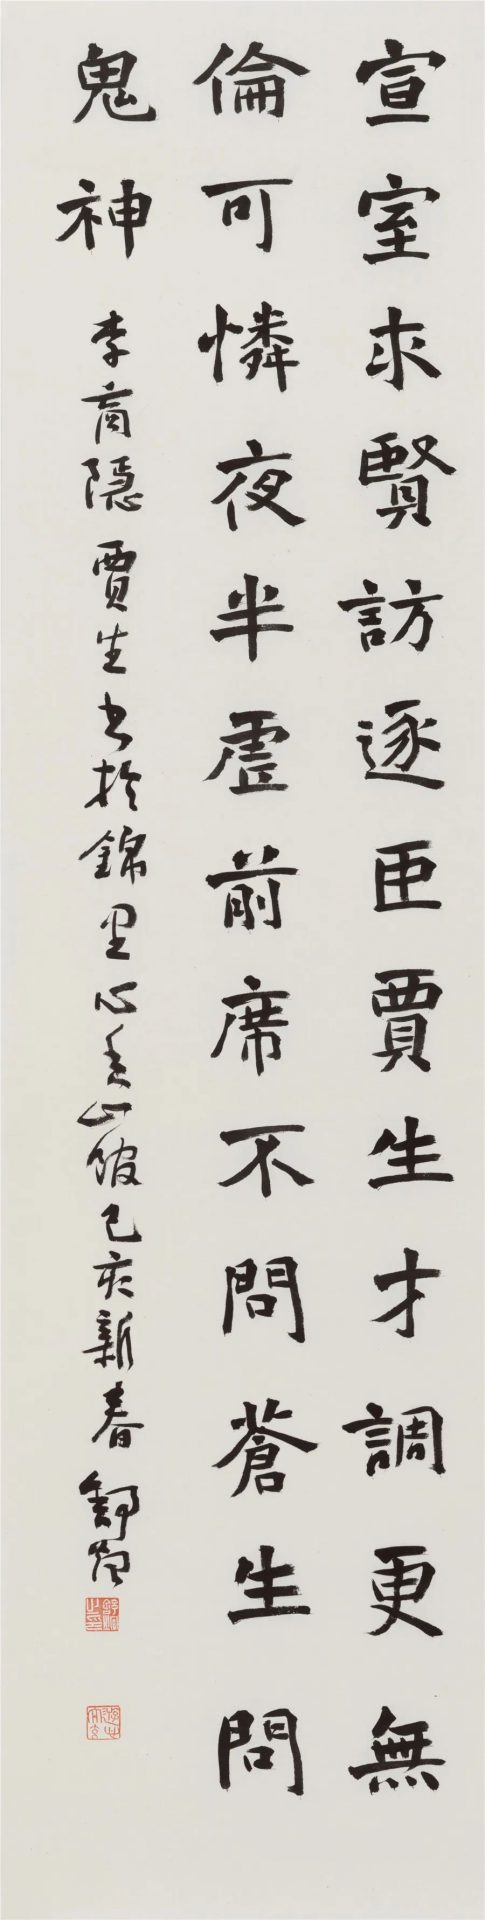 宣室求賢訪逐臣賈生才調更無
倫可憐夜半虛前席不問蒼生問
鬼神 李商隱賈生書於錦里心香山館己亥新春 舒炯